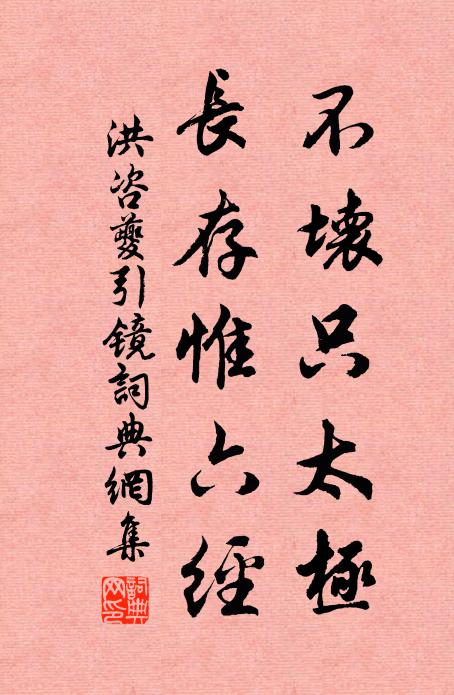 不壞只太極
長存惟六經
洪咨夔引鏡詞典網集
詞典網印